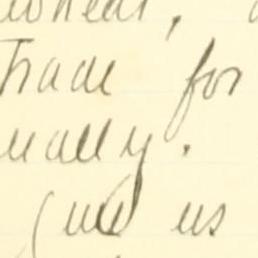 wheat,
Trade for
ually.
us